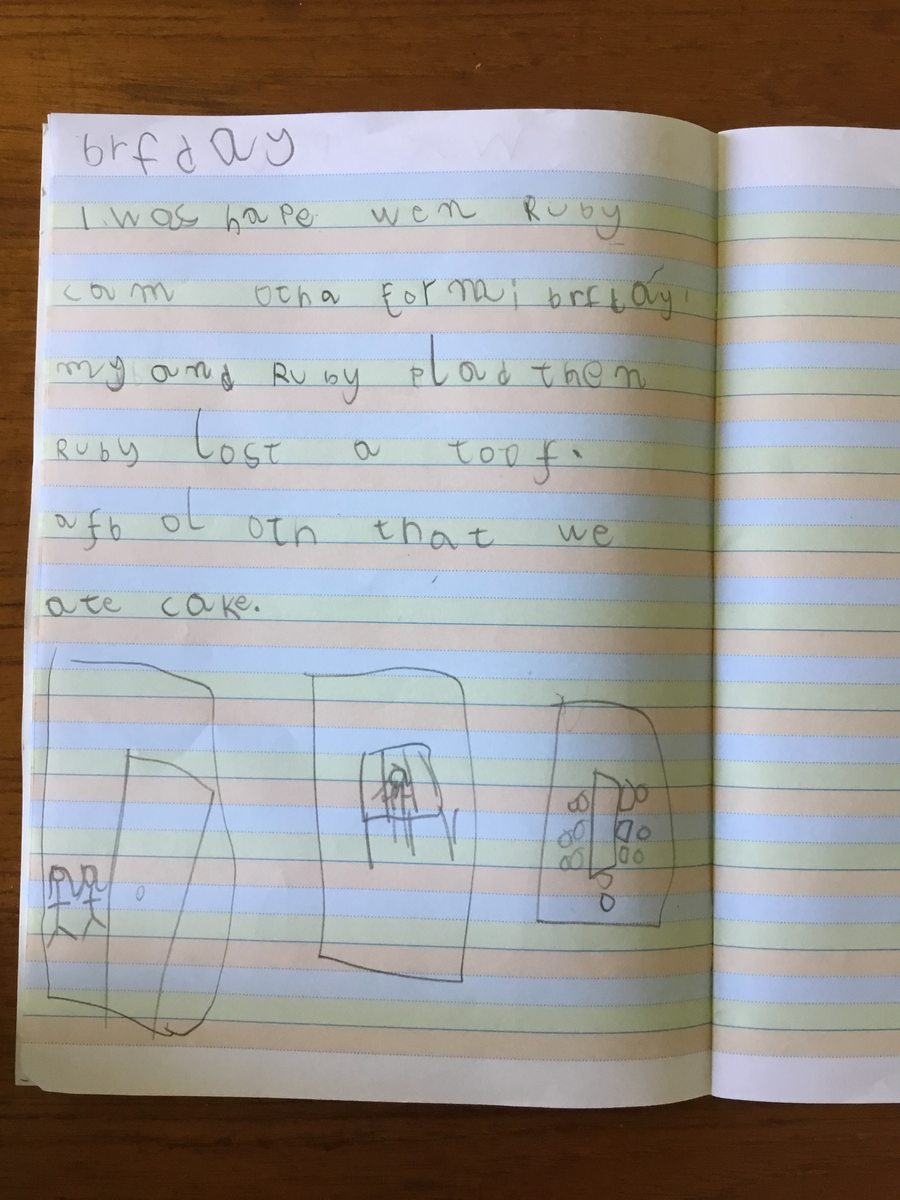 brfday
I was hape wen Ruby
cam otha for mi brfday
my and Ruby plad then
Ruby lost a toof.
afb ol oth that we
ate cake.